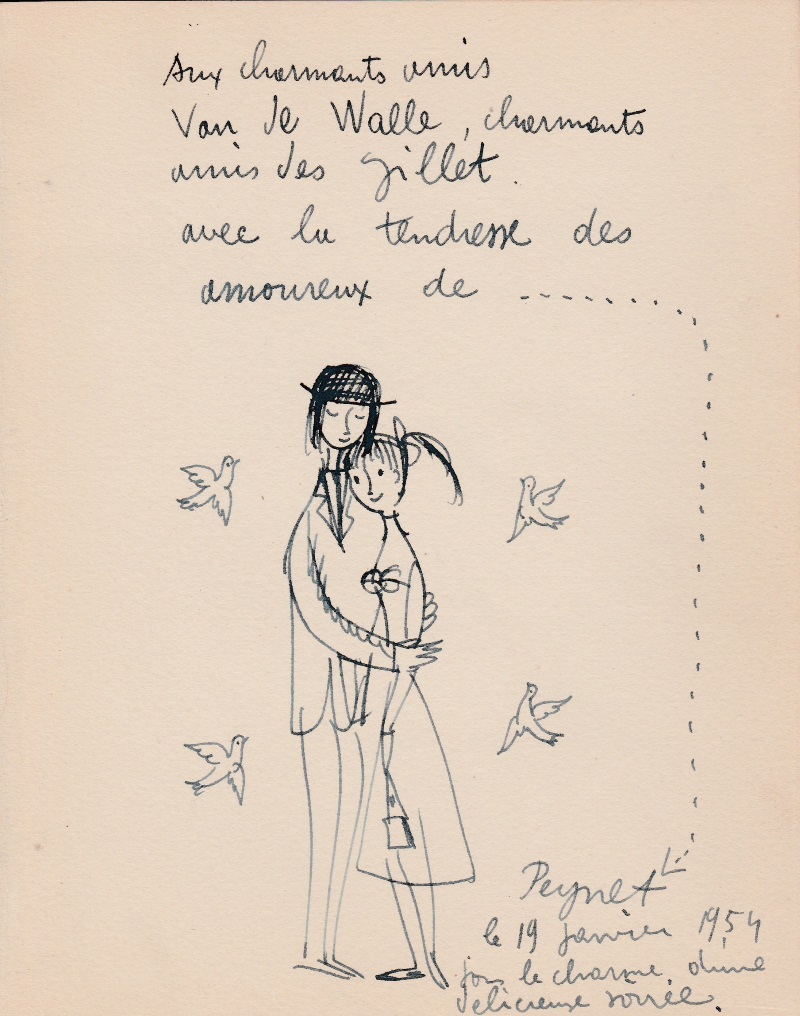 Aux charmants amis
Van de Walle, charmants
amis des Gillet.
avec la tendresse des
amoureux de ..........
Peynet
le 19 janvier 1954
sous le charme d'une
délicieuse soirée.